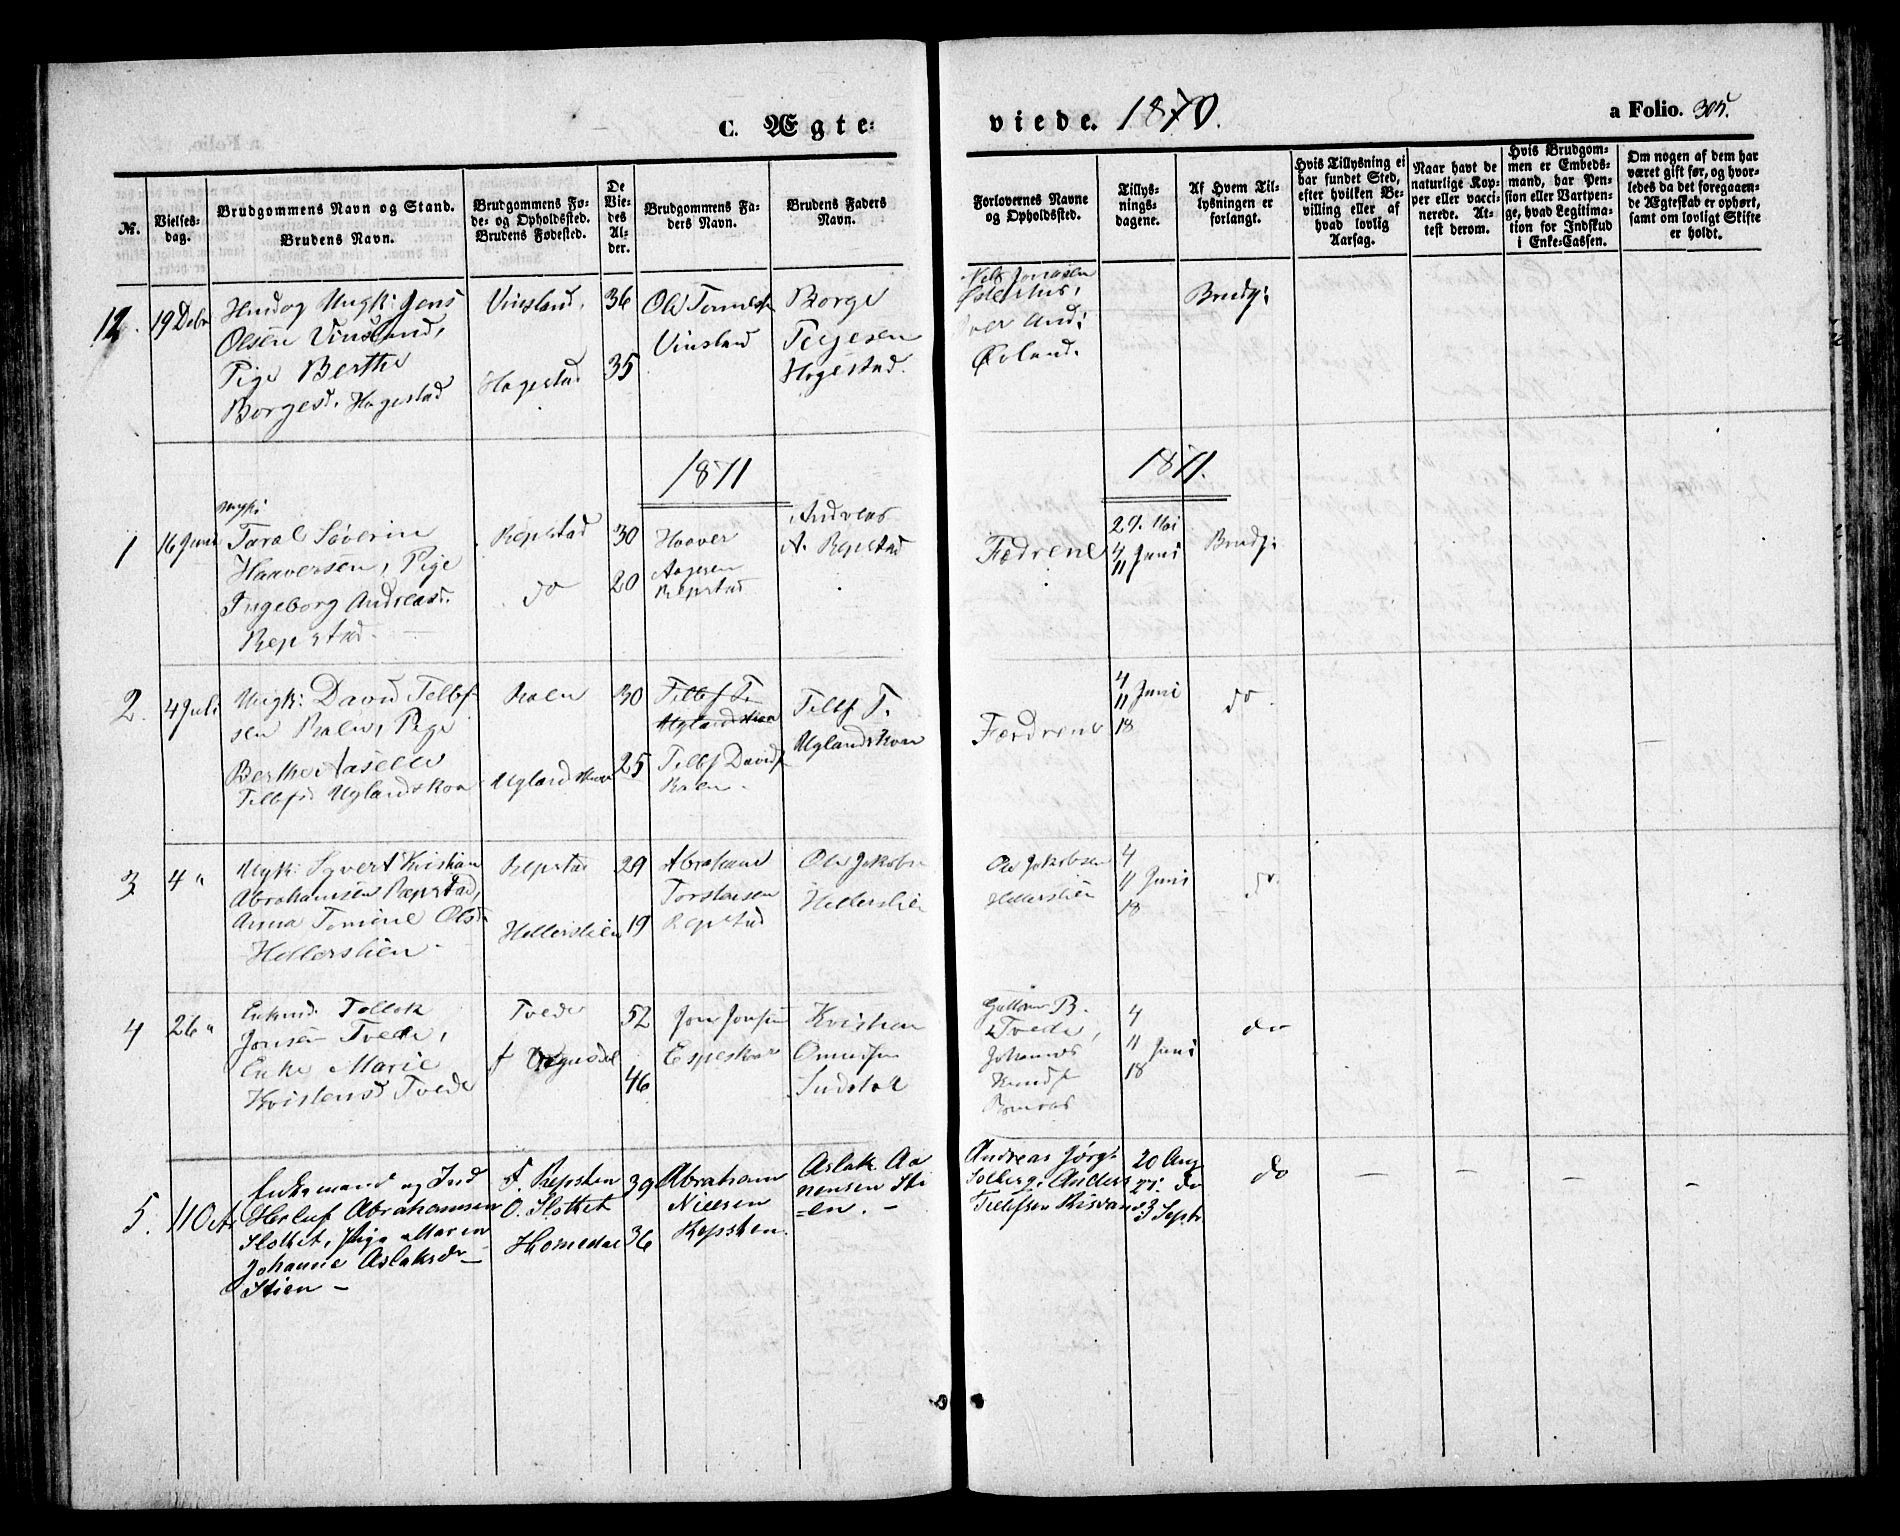 C. Ægte-
viede. 1870.
a Folio. 305.
№.
Vielses-
dag.
Brudgommens Navn og Stand.
Brudens Navn.
Brudgommens Fø-
de- og Opholdssted.
Brudens Fødested.
De
Vie-
des
Al-
der.
Brudgommens Fa-
ders Navn.
Brudens Faders
Navn.
Forlovernes Navne
og Opholdssted.
Tillys-
nings-
dagene.
Af Hvem Til-
lysningen er
forlangt.
Hvis Tillysning ei
har fundet Sted,
efter hvilken Be-
villing eller af
hvad lovlig
Aarsag.
Naar havt de
naturlige Kop-
per eller vacci-
nerede. At-
test derom.
Hvis Brudgom-
men er Embeds-
mand, har Pen-
sion eller Vartpen-
ge, hvad Legitima-
tion for Indskud
i Enke-Cassen.
Om nogen af dem har
været gift før, og hvor-
ledes da det foregaaen-
de Ægteskab er ophørt,
samt om lovligt Skifte
er holdt.
12.
19 Debr
Ungk: Jens
Olsen Vinsland,
Pige Berthe
Borgesd. Hagestad
Vinsland.
Hagestad
36
35
Ole
Vinsland
Borge
Terjesen
Hagestad.
Niels Jonassen
And:
Øvland.
Brudg:
1871
1871.
1
16 Juni
Ungk:
Taral Søverin
Haaversen, Pige
Ingeborg Andreasd.
Repstad.
Repstad
do
30
20
Haaver
Aagesen
Repstad
Andreas
A. Repstad
Fædrene
29. Mai
4
11 Juni
Brudg:
2.
4 Juli
Ungk: David Tellef-
sen Aalen, Pige
Berthe Aaselle
Tellefsd Uglandskon
Uglandskon
30
25
Tellef T.
Uglandskon
Tellef Davids
Tellef T.
Uglandskon
Fædrene
4
11 Juni
18
do
3
4 "
Ungk: Syvert Kristian
Abrahamsen Repstad,
Anna Tomine Olsd.
Hellerslien
Repstad
Hellerslien
29
19
Abraham
Torstensen
Repstad
Ole Jakobsn
Hellerslien
Ole Jakobsen
Hellerslien
4
11 Juni
18
do.
4
26 "
Enkmd. Tellok
Jonsen Tvede,
Enke Marie
Kristensd Tvede
Tvede
52
46
Jon Jonsen
Espeskar
Kristen
Omundsen
B.
Tvede,
Johannes
Knuds
4
11 Juni
18
do
5.
11 Oct.
Enkemand og Ind
Herluf Abrahamsen
Slottet, Pige Maren
Johanne Aslaksdr
Stien –
F. Repsten
O. Slottet
Homedal
39
36
Abraham
Nielsen
Repsten
Aslak Aa
nensen Sti
=en. –
Andreas Jørg:
Solberg, Anders
Tellefsen Risvand
20 Aug
27. do
3 Septr
do
– – – –